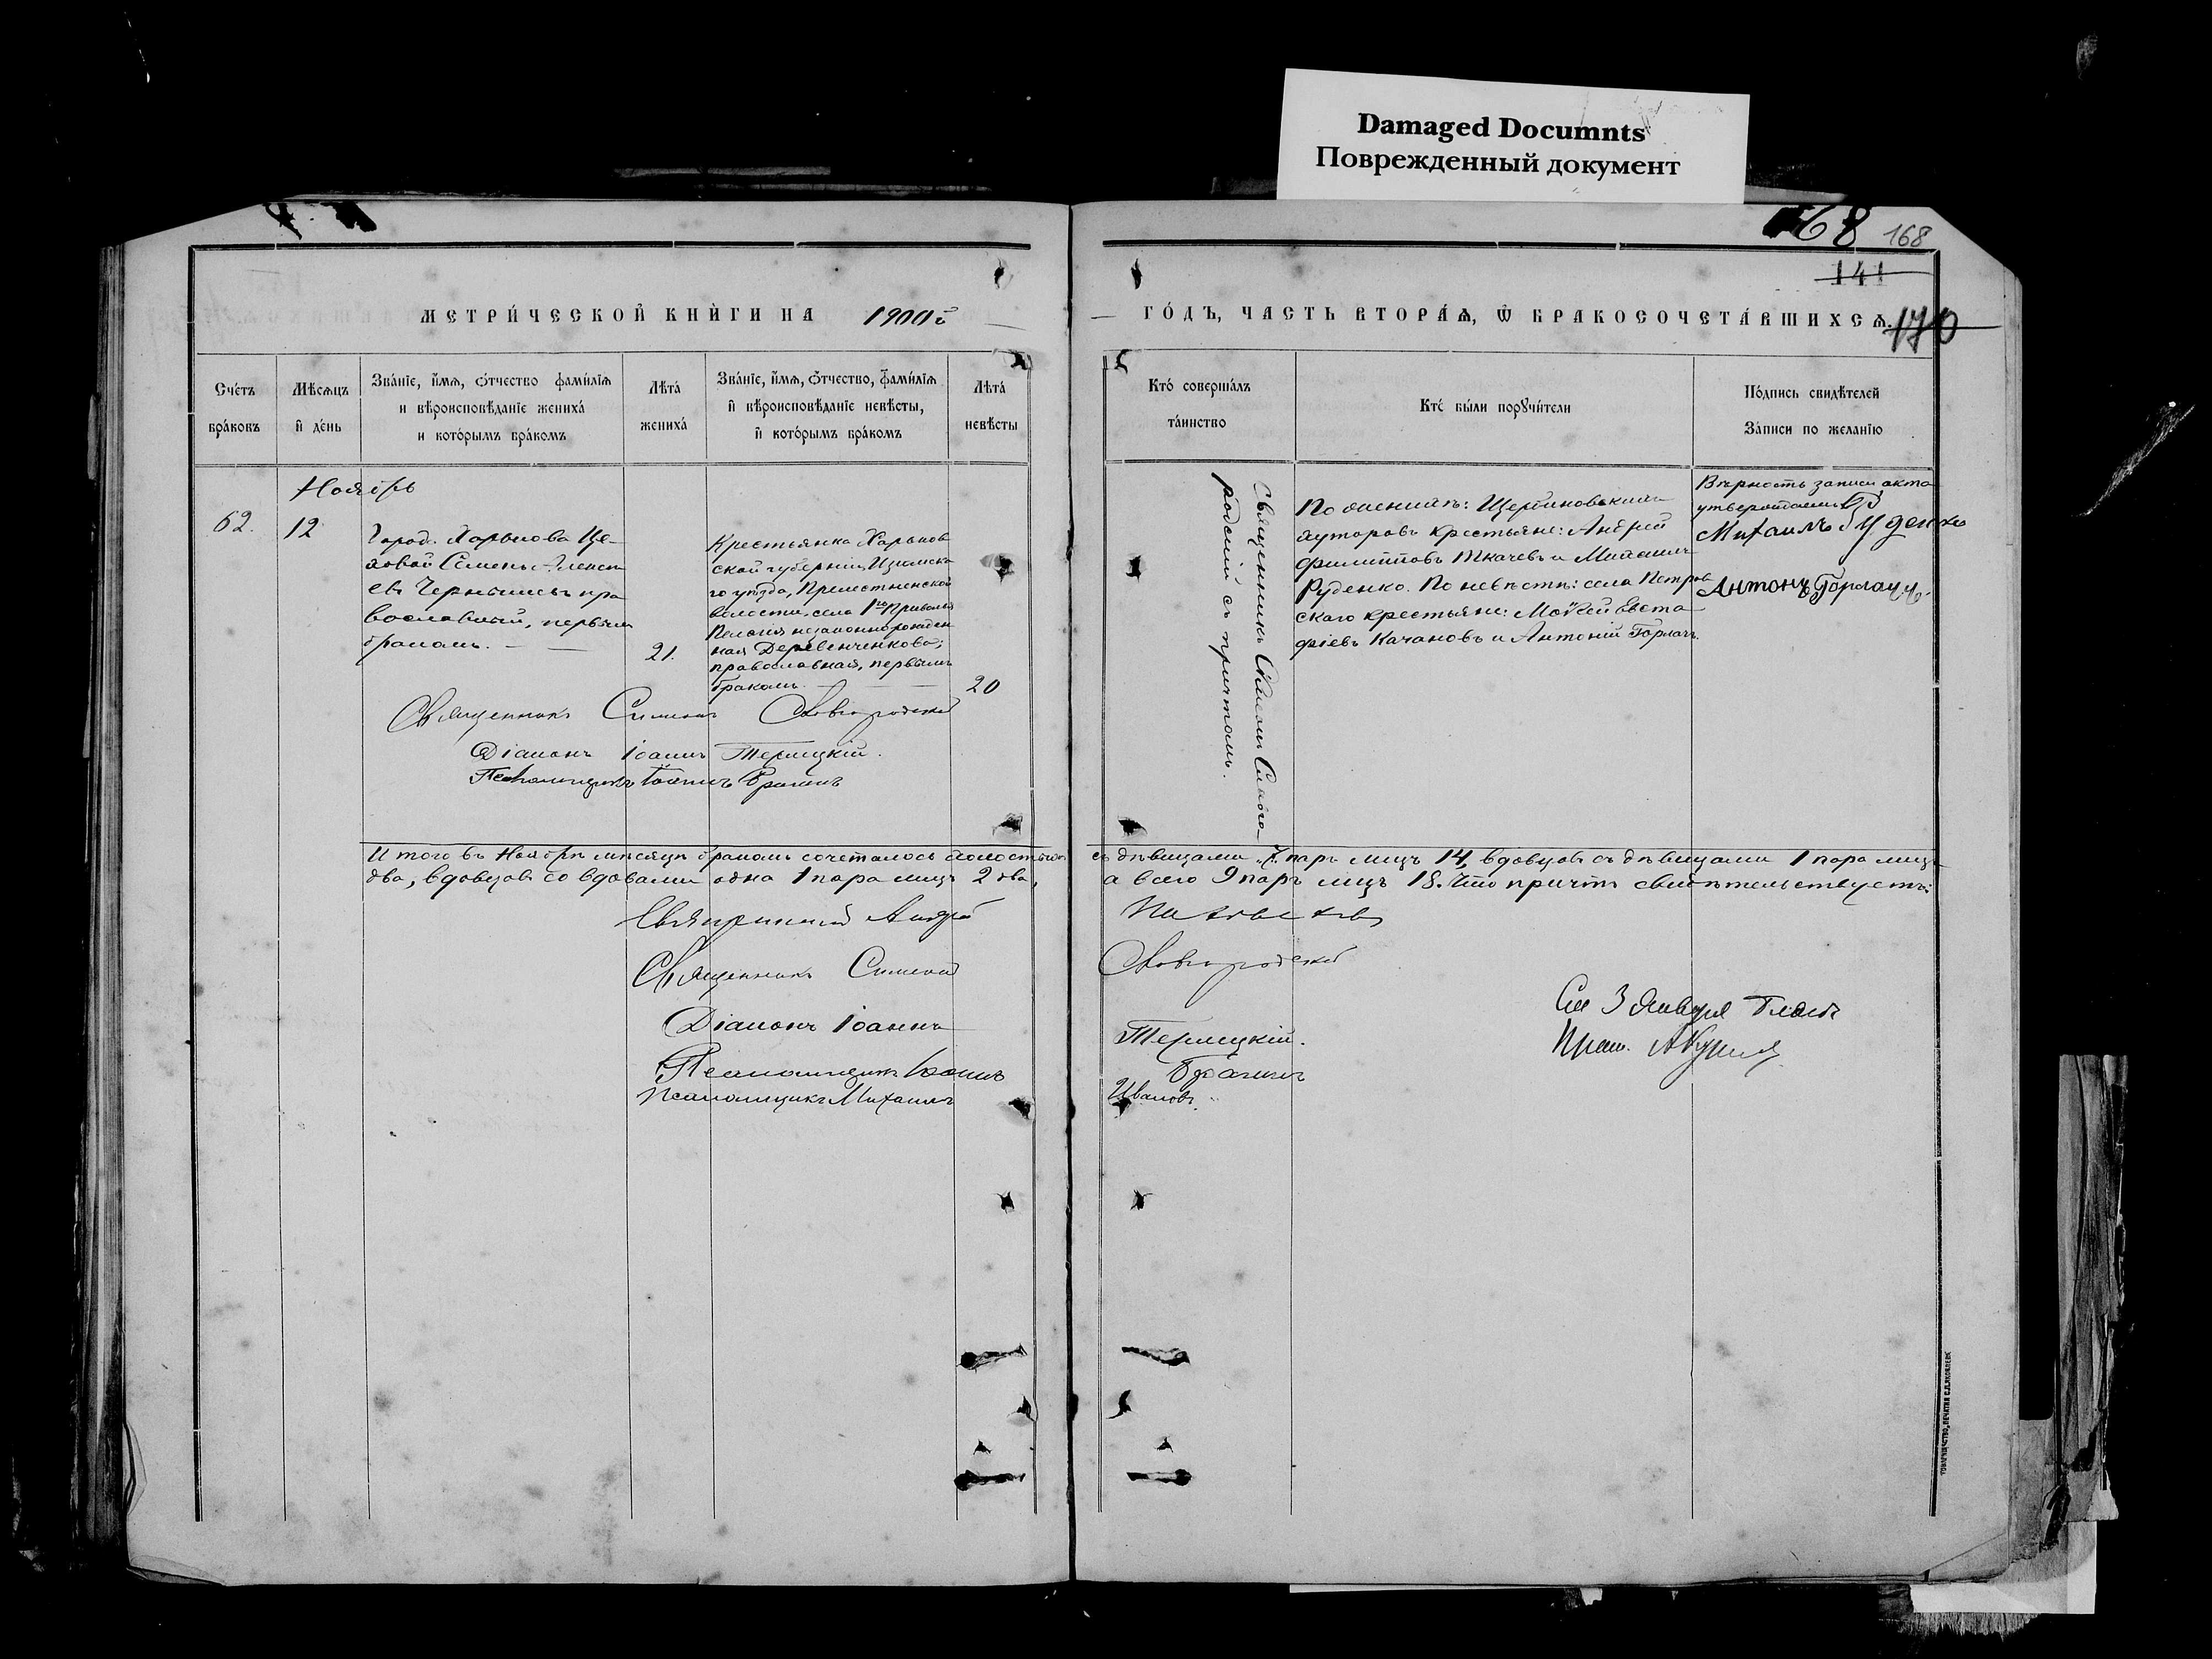 Damaged Documnts
Поврежденный документ
168
168
141
170
МЕТРИ́ЧЕСКОЙ КНИ́ГИ НА 1900й
ГО́ДЪ, ЧАСТЬ ВТОРА́Ѧ, Ѿ БРАКОСОЧЕТА́ВШИХСѦ.
Сче́тъ бра́ковъ
Мѣ́сѧцъ и҆ де́нь
Зва́нїе, и҆́мѧ, ѻ҆́тчество фами́лїѧ и вѣроисповѣ́данїе жениха́ и кото́рымъ бра́комъ
Лѣта́ жениха́
Зва́нїе, и҆́мѧ, ѻ҆́тчество, фами́лїѧ и҆ вѣроисповѣ́данїе невѣ́сты, и҆ кото́рымъ бра́комъ
Лѣта́ невѣ́сты
Кто́ соверша́лъ та́инство
Кто́ бы́ли порꙋчи́тели
По́дпись свидѣ́телей За́писи по жела́нїю
Ноябрь
62.
12
Город. Харькова Це-
ховой Семенъ Алексѣ
евъ Чернышевъ пра
вославный, первымъ
бракомъ.
21.
Крестьянка Харьков
ской губерніи, Изюмска
го уѣзда,
волости, села 1го Привольн
Пелагія незаконнорожден
ная Деревенченкова;
православная, первымъ
бракомъ.
20
Священникъ Симеонъ Сниго-
родскій съ причтомъ.
По женихѣ: Щербиновскихъ
хуторовъ крестьяне: Андрей
Филипповъ Ткачевъ и Михаилъ
Руденко. По невѣстѣ: села Петров
скаго крестьяне: Моѵсей Евста
фіевъ Качановъ и Антоній Горлачъ.
Вѣрность записи акта
утверждаемъ
Михаилъ Руденко
Антонъ Горлачъ.
Священникъ Симеонъ
Діаконъ Іоаннъ Терлецкій.
Псаломщикъ Іоаннъ
Итого въ Ноябрѣ мѣсяцѣ бракомъ сочеталось холостыхъ съ дѣвицами 7 паръ лицъ 14, вдовцовъ съ дѣвицами 1 пара лицъ
два, вдовцовъ со вдовами одна 1 пара лицъ 2 два, а всего 9 паръ лицъ 18. Что причтъ свидѣтельствуетъ:
Священникъ Андрей
Священникъ Симеонъ
Діаконъ Іоаннъ Терлецкій.
Псаломщикъ Іоаннъ
Псаломщикъ Михаилъ Ивановъ.
3 Января